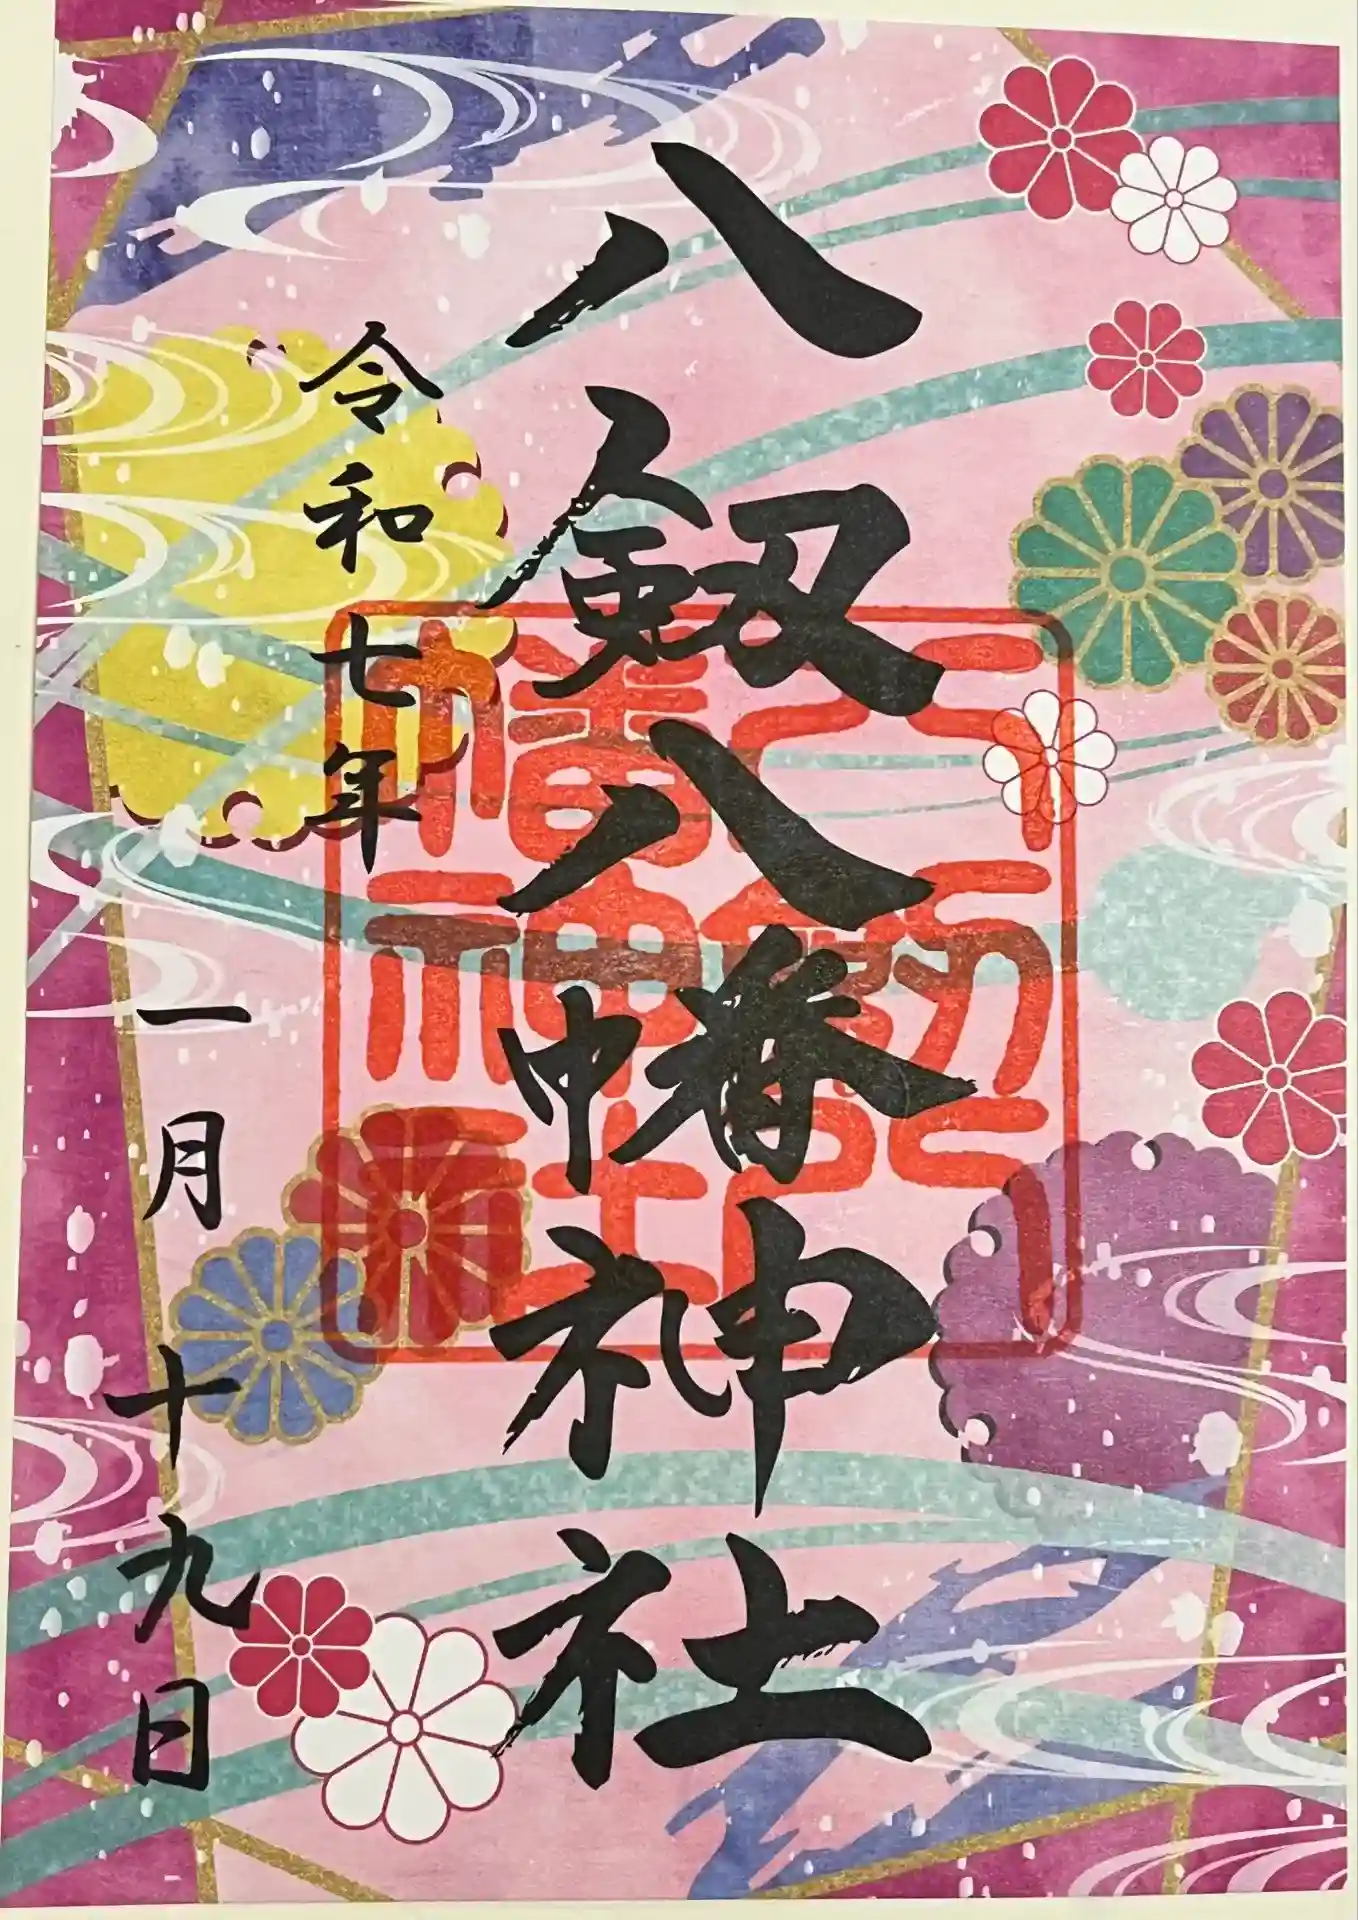 八剱八幡神社
令和七年
一月十九日
八剱八
幡神社